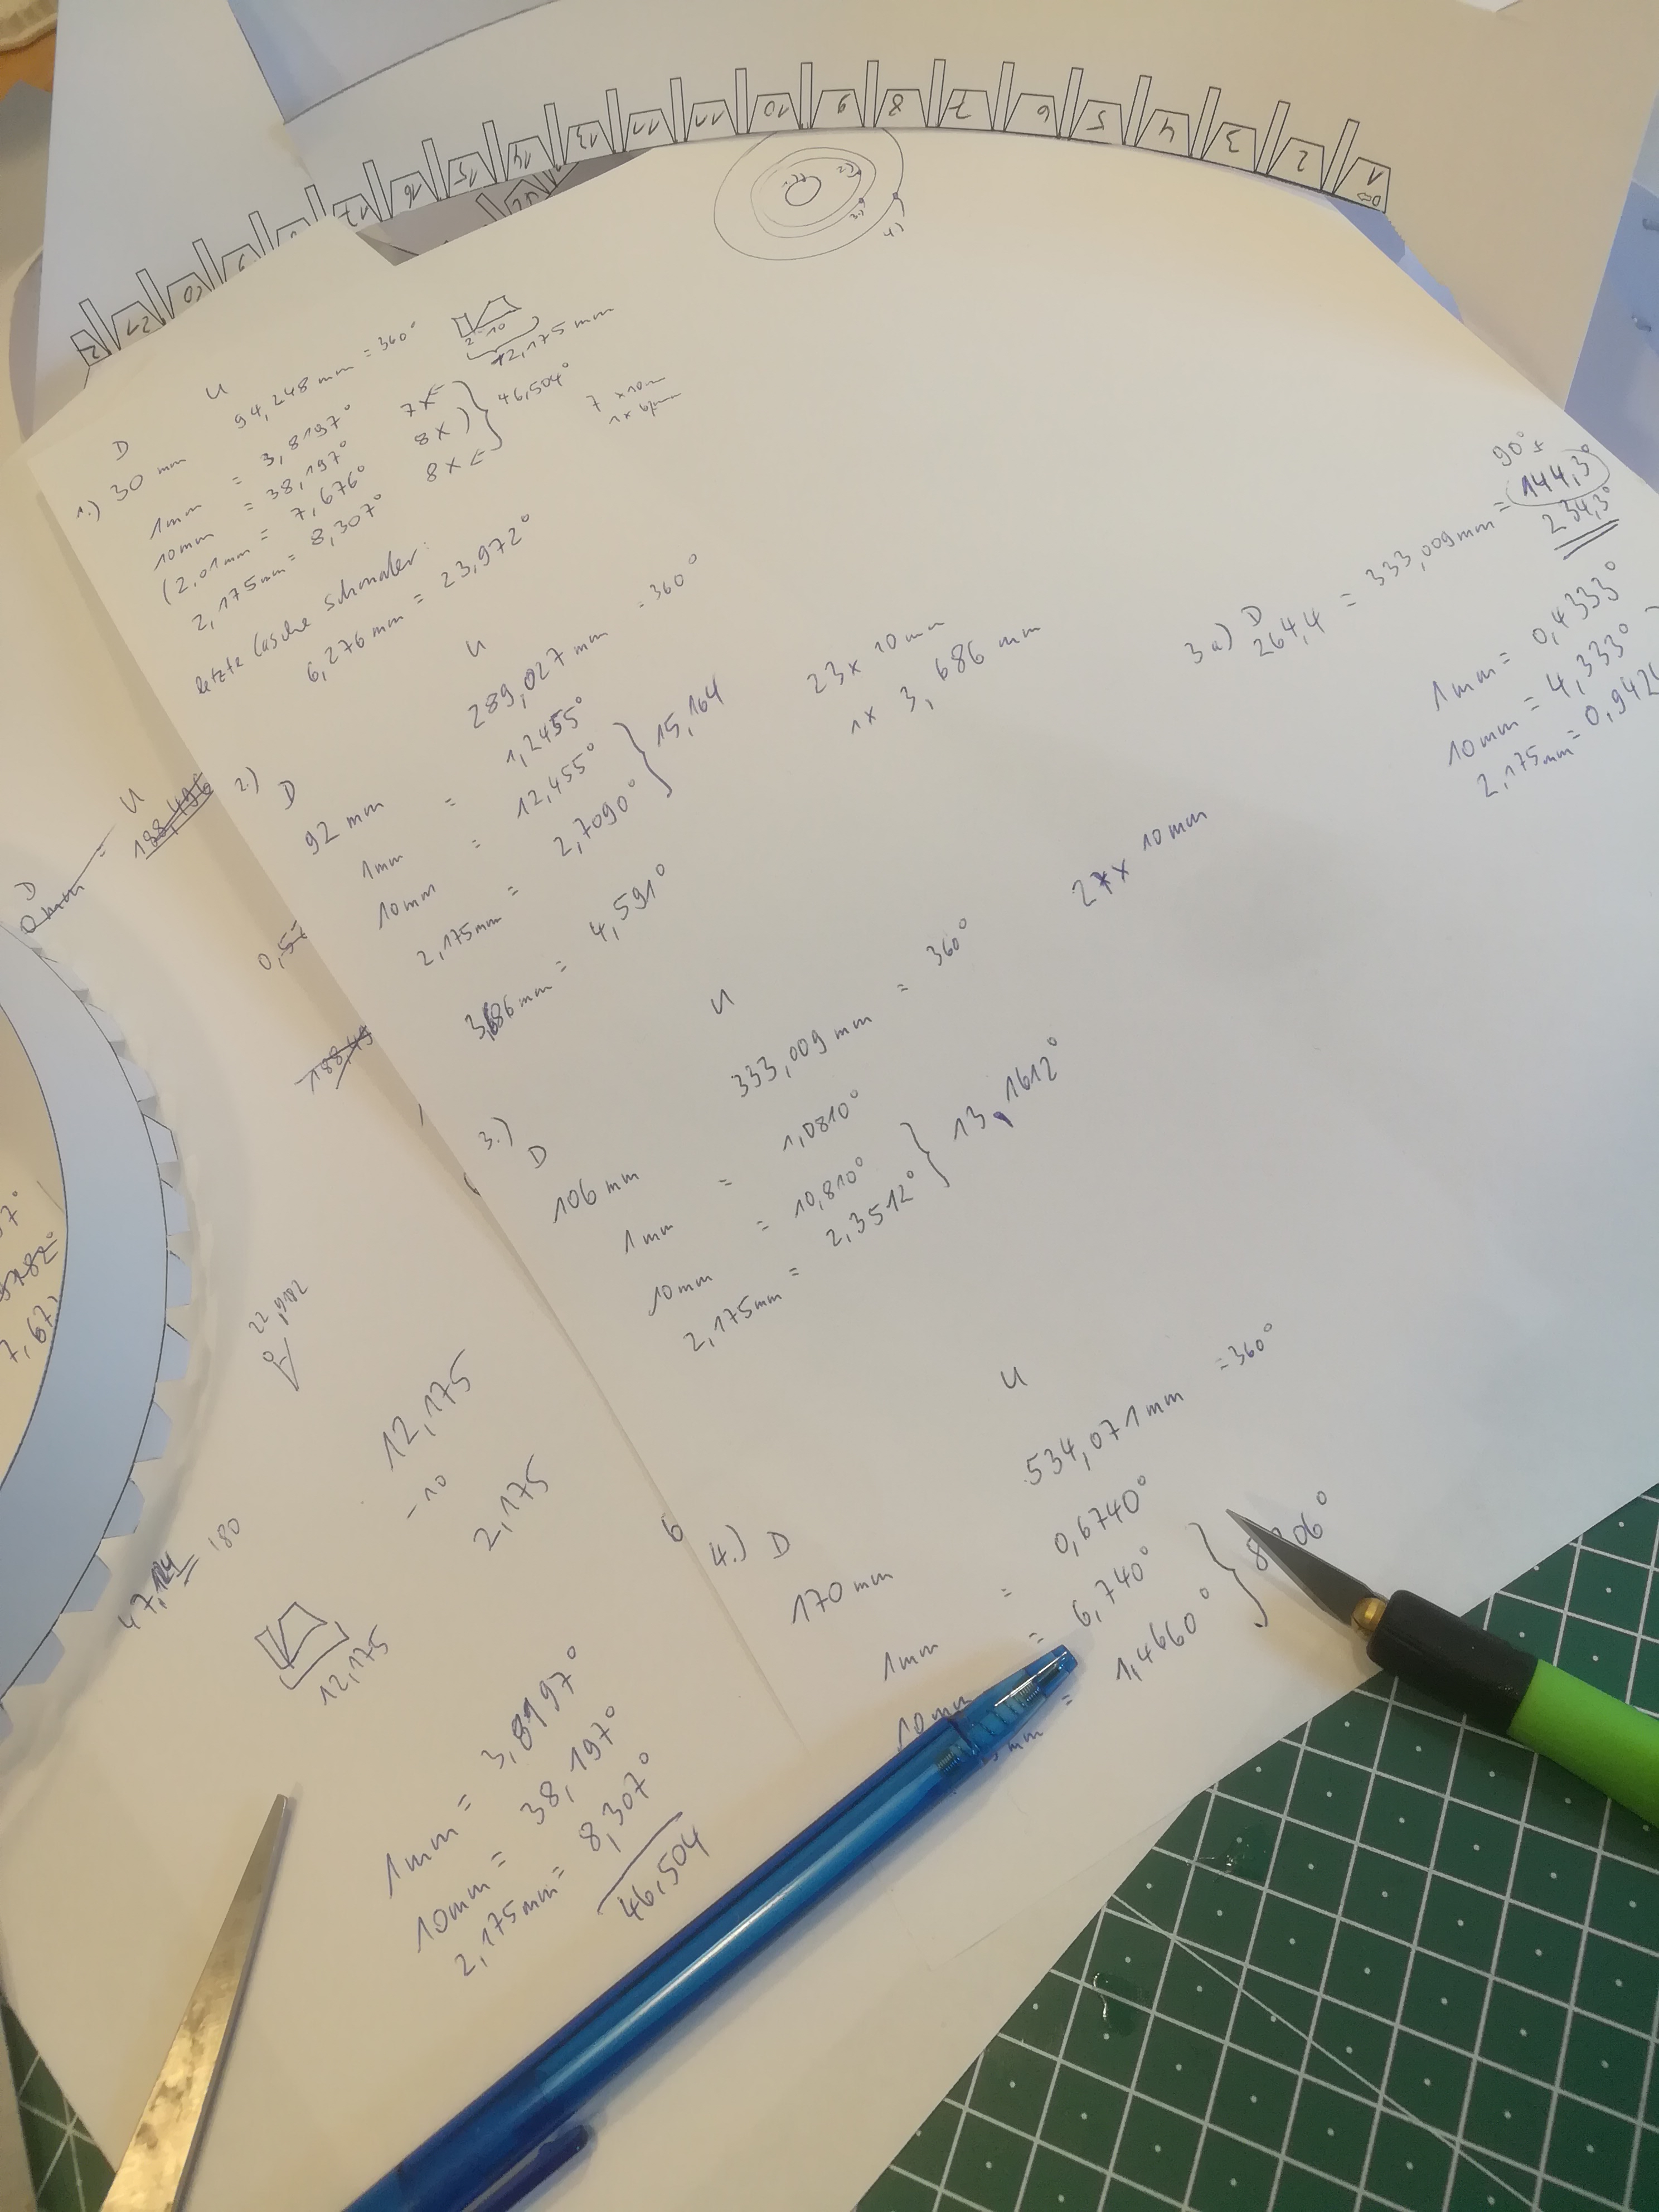 1
2
3
4
5
6
7
8
9
10
11
11
13
14
15
16
17
4)
D
U
1.) 30 mm
94,248 mm = 360°
1mm = 3,8197°
10mm = 38,197°
(2,01mm = 7,676°
2,175mm = 8,307°
7x
8x
8x
46,504°
2
10
12,175 mm
7 x 10m
letzte Lasche schmaler:
6,276 mm = 23,972°
2.)
D
U
92 mm
289,027 mm = 360°
1mm = 1,2455°
10mm = 12,455°
2,175mm = 2,7090°
15,164
3,686mm = 4,591°
23x 10 mm
1x 3,686 mm
3a) D
264,4 = 333,009mm = 144,3°
90°+
234,3°
1mm = 0,4333°
10mm = 4,333°
2,175mm = 0,942
3.)
D
U
106 mm
333,009 mm = 360°
1mm = 1,0810°
10mm = 10,810°
2,175mm = 2,3512°
13,1612°
27x 10mm
4.) D
U
170 mm
534,071mm = 360°
1mm = 0,6740°
10mm = 6,740°
mm = 1,4660°
06°
D
U
188,496
0,5
188,49
22,912
12,175
-10
2,175
6
180
12,175
1mm = 3,8197°
10mm = 38,197°
2,175mm = 8,307°
46,504
7,67